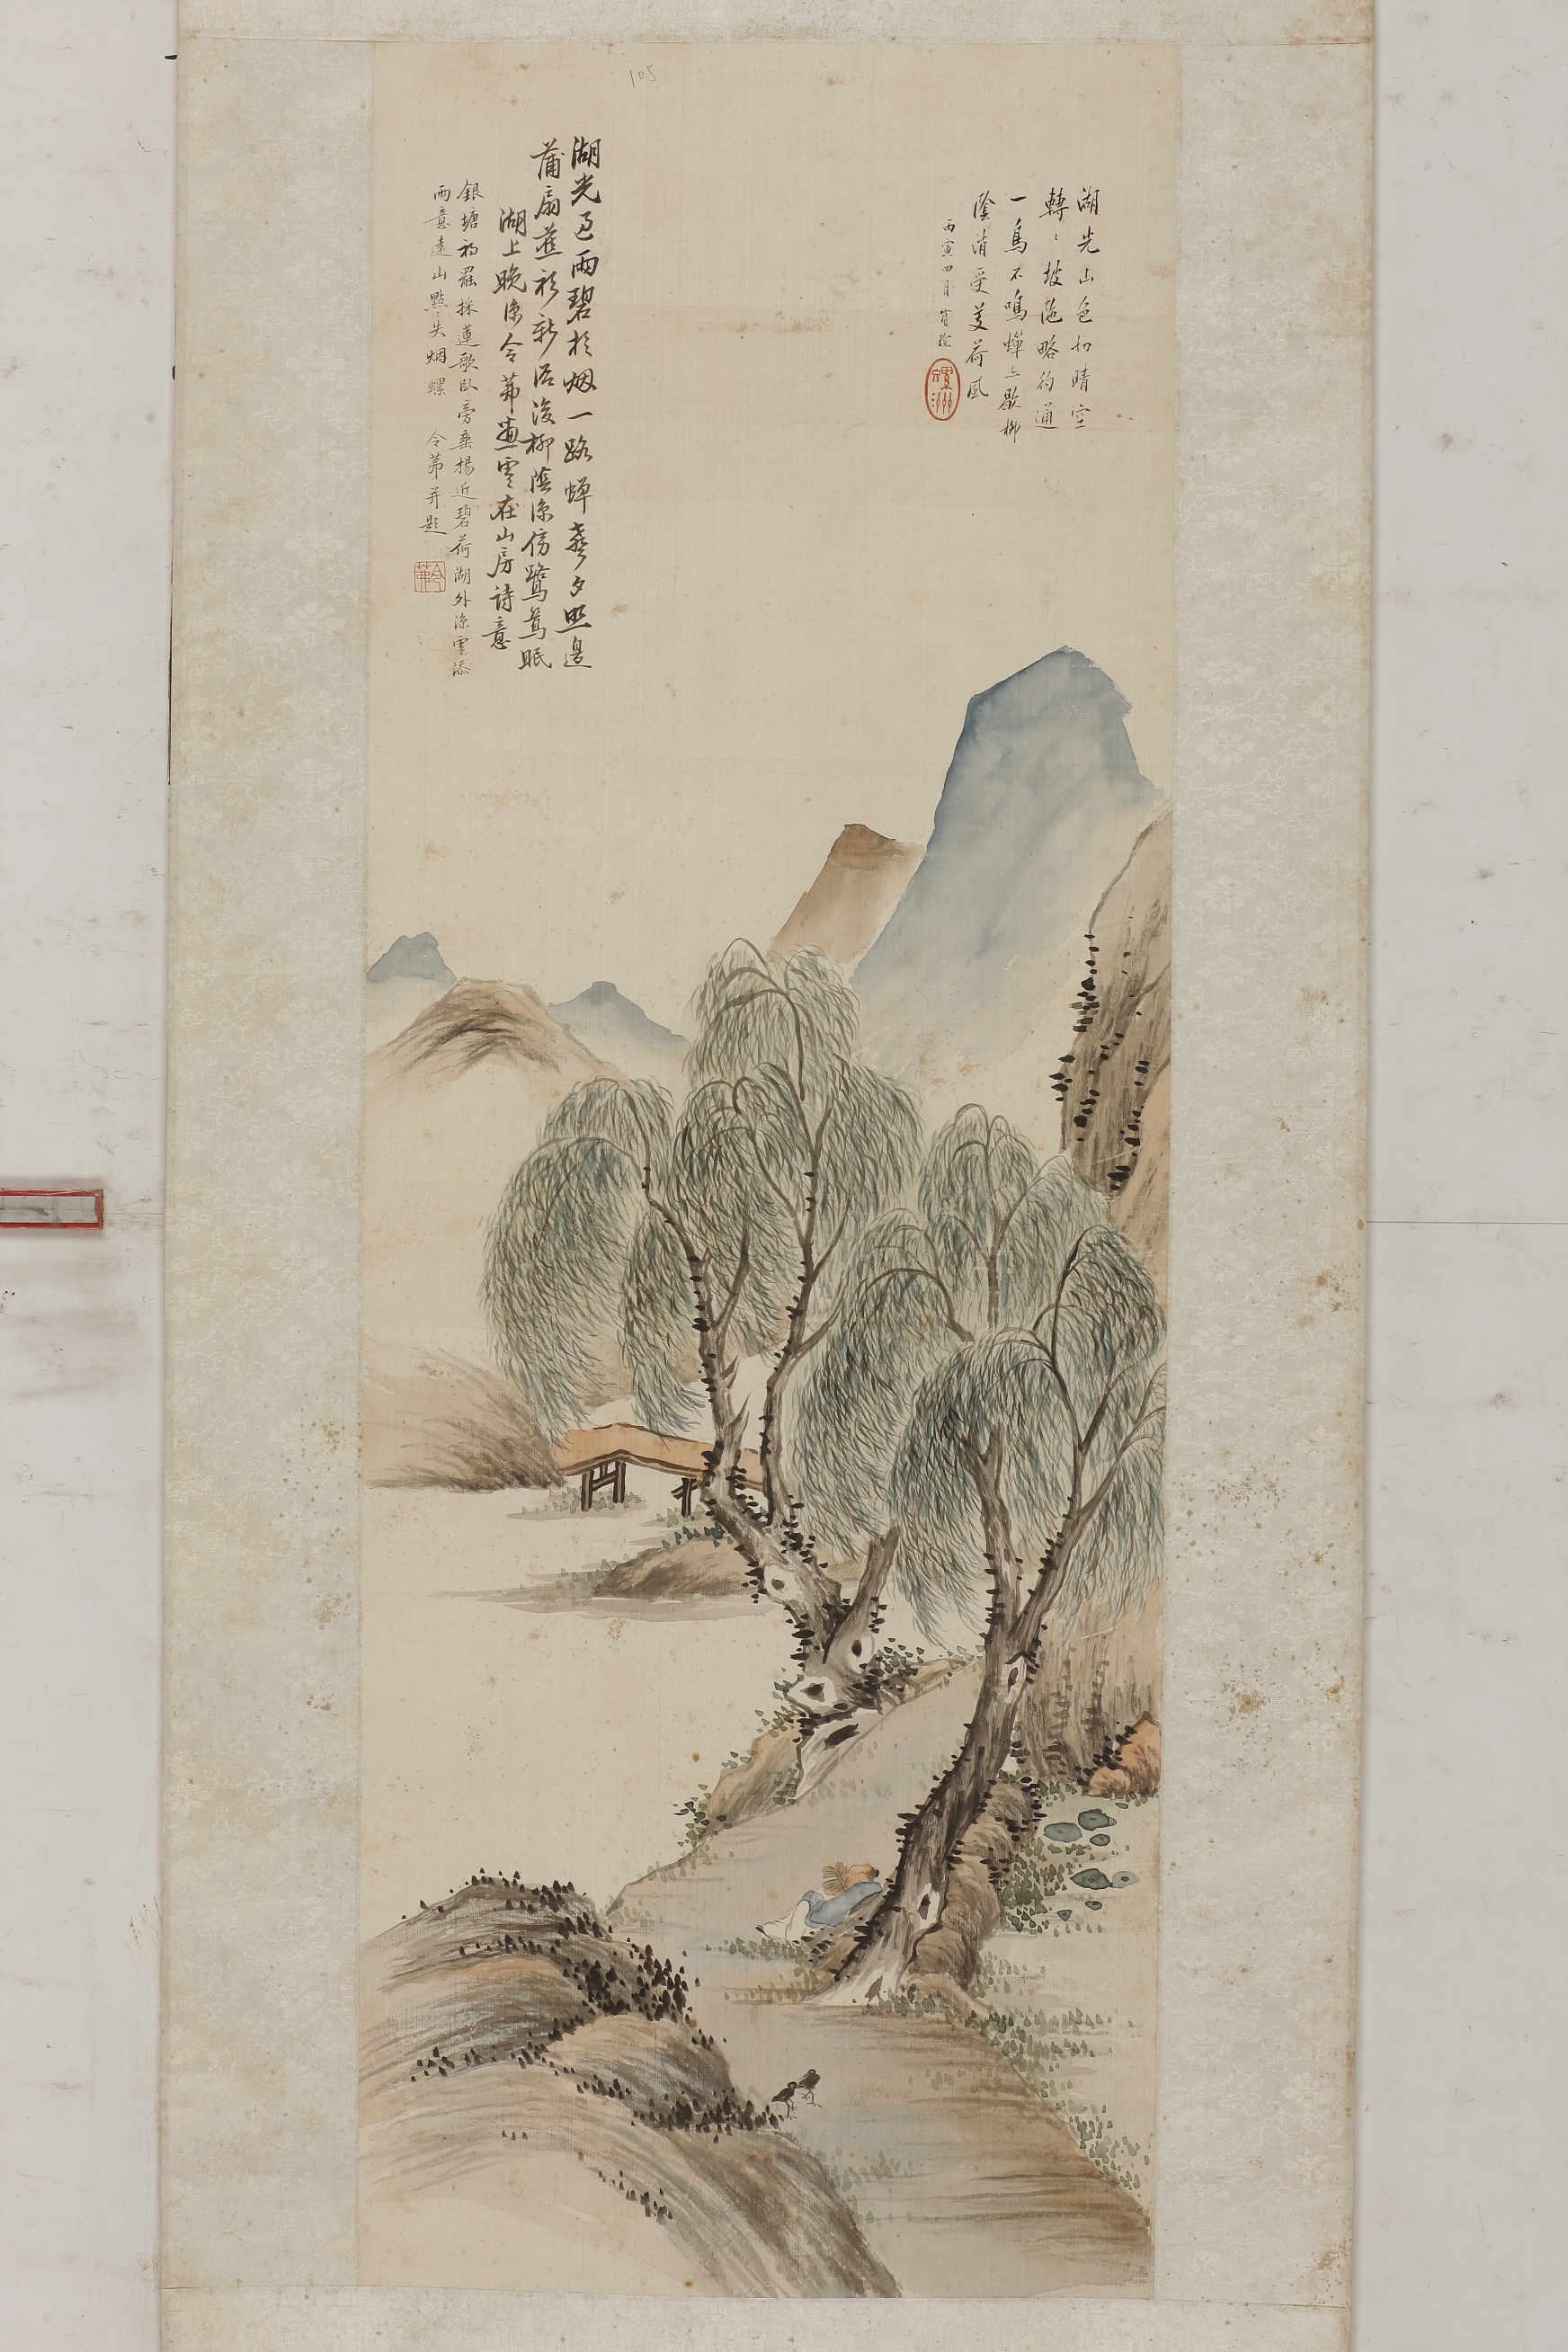 105
湖光山色切晴空
轉〻坡陁略彴通
一鳥不鳴蟬亦歇柳
陰消受芰荷風
丙寅四月
湖光過雨碧於烟一路蟬聲夕照邊
蒲扇蕉衫新浴後柳陰涼傍鷺鷥眠
湖上晚涼令茀畫雲在山房詩意
銀塘初罷採蓮歌臥旁垂楊近碧荷湖外涼雲添
雨意遠山點失烟螺 令茀并題
令茀